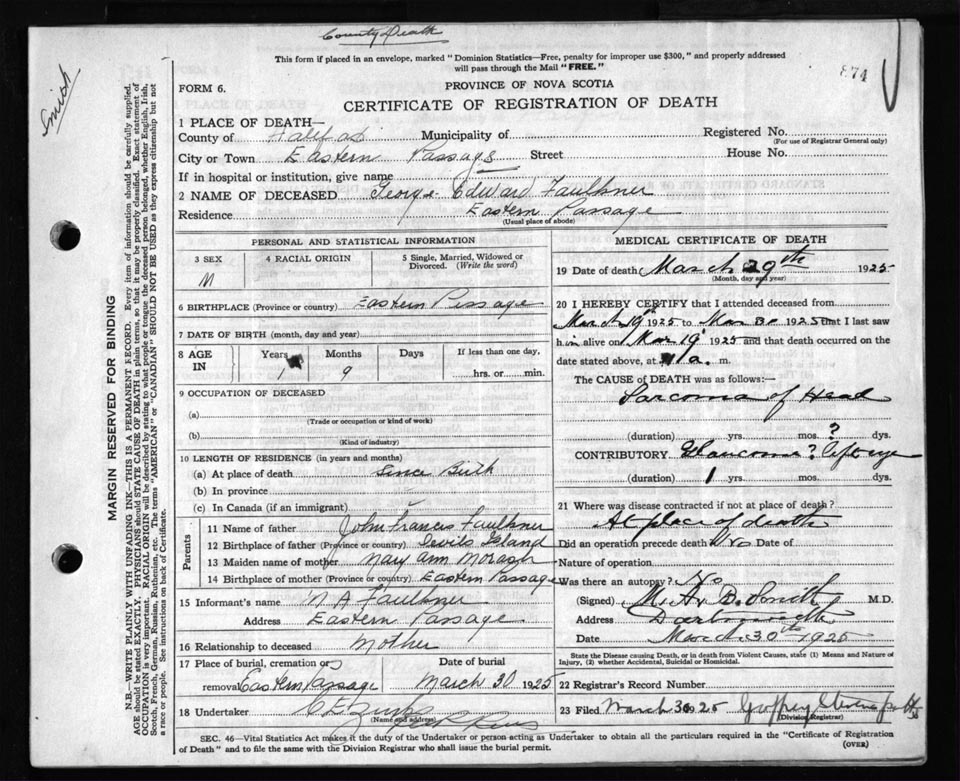 County Death
This form if placed in an envelope, marked "Dominion Statistics—Free, penalty for improper use $300," and properly addressed
will pass through the Mail "FREE."
874
Smith
FORM 6.
PROVINCE OF NOVA SCOTIA
CERTIFICATE OF REGISTRATION OF DEATH
1 PLACE OF DEATH—
County of Halifax Municipality of Registered No.
(For use of Registrar General only)
City or Town Eastern Passage Street House No.
If in hospital or institution, give name
2 NAME OF DECEASED George Edward Faulkner
Residence Eastern Passage
(Usual place of abode)
MARGIN RESERVED FOR BINDING
N.B.—WRITE PLAINLY WITH UNFADING INK—THIS IS A PERMANENT RECORD. Every item of information should be carefully supplied.
AGE should be stated EXACTLY. PHYSICIANS should STATE CAUSE OF DEATH in plain terms, so that it may be properly classified. Exact statement of
OCCUPATION is very important. RACIAL ORIGIN will be described by stating to what people or tongue the deceased person belonged, whether English, Irish,
Scotch, French, German, Russian, Ruthenian, etc. The terms "AMERICAN" or "CANADIAN" SHOULD NOT BE USED as they express citizenship but not
a race or people. See instructions on back of Certificate.
PERSONAL AND STATISTICAL INFORMATION
3 SEX 4 RACIAL ORIGIN 5 Single, Married, Widowed or
Divorced. (Write the word)
M
6 BIRTHPLACE (Province or country) Eastern Passage
7 DATE OF BIRTH (month, day and year)
8 AGE IN Years Months Days If less than one day,
1 9 hrs. or min.
9 OCCUPATION OF DECEASED
(a)
(Trade or occupation or kind of work)
(b)
(Kind of industry)
10 LENGTH OF RESIDENCE (in years and months)
(a) At place of death Since Birth
(b) In province
(c) In Canada (if an immigrant)
Parents
11 Name of father John Francis Faulkner
12 Birthplace of father (Province or country) Devils Island
13 Maiden name of mother Mary Ann Morash
14 Birthplace of mother (Province or country) Eastern Passage
15 Informant's name M A Faulkner
Address Eastern Passage
16 Relationship to deceased Mother
17 Place of burial, cremation or Date of burial
removal Eastern Passage March 30 1925
18 Undertaker
(Name and address)
MEDICAL CERTIFICATE OF DEATH
19 Date of death March 29th 1925
(Month, day and year)
20 I HEREBY CERTIFY that I attended deceased from
March 19 1925 to Mar 30 1925 that I last saw
him alive on Mar 19 1925 and that death occurred on
date stated above, at a. m.
The CAUSE OF DEATH was as follows:—
Sarcoma of Head
(duration) yrs. mos. ? dys.
CONTRIBUTORY Glaucoma ? left eye
(duration) 1 yrs. mos. dys.
21 Where was disease contracted if not at place of death?
At place of death
Did an operation precede death? No Date of
Nature of operation
Was there an autopsy? No
(Signed) B. Smith M.D.
Address Dartmouth
Date March 30th 1925
State the Disease causing Death, or in death from Violent Causes, state (1) Means and Nature of
Injury, (2) whether Accidental, Suicidal or Homicidal.
22 Registrar's Record Number
23 Filed March 30 1925
(Division Registrar)
SEC. 46—Vital Statistics Act makes it the duty of the Undertaker or person acting as Undertaker to obtain all the particulars required in the "Certificate of Registration
of Death" and to file the same with the Division Registrar who shall issue the burial permit.
(OVER)